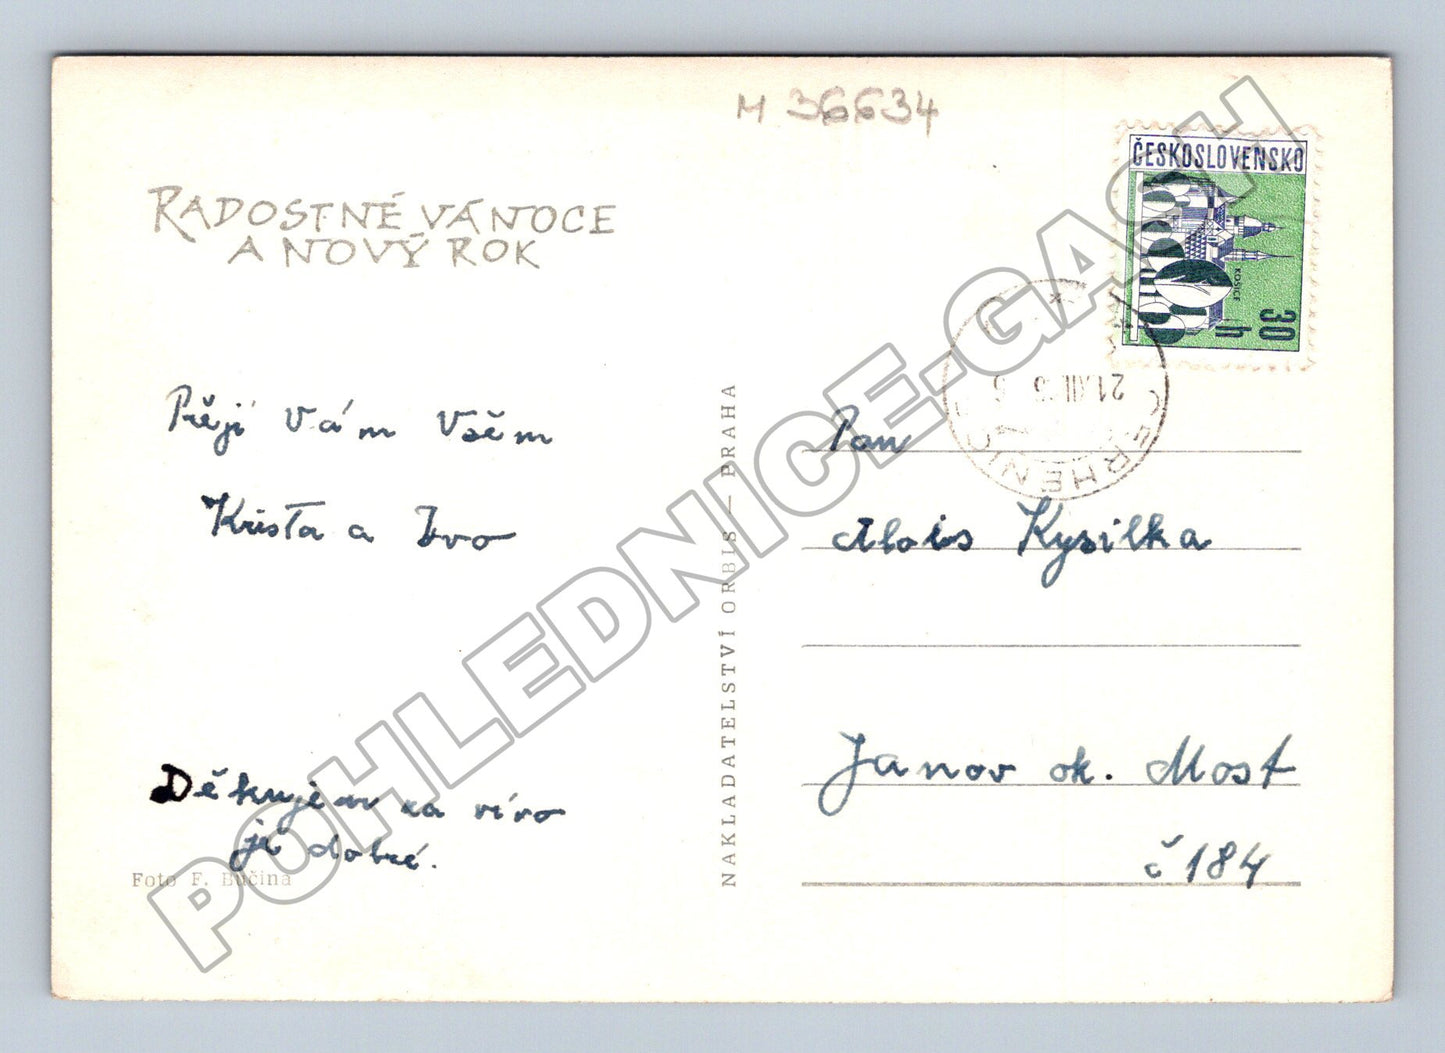 M 36634
RADOSTNÉ VÁNOCE
A NOVÝ ROK
Přejí Vám Všem
Krista a Ivo
Děkujem za víno
je dobré.
Foto F. Bučina
NAKLADATELSTVÍ ORBIS — PRAHA
ČESKOSLOVENSKO
KOŠICE
30 h
21.XII.
CERHENIC
Pan
Alois Kysilka
Janov ok. Most
č 184
POHLEDNICE-GASH